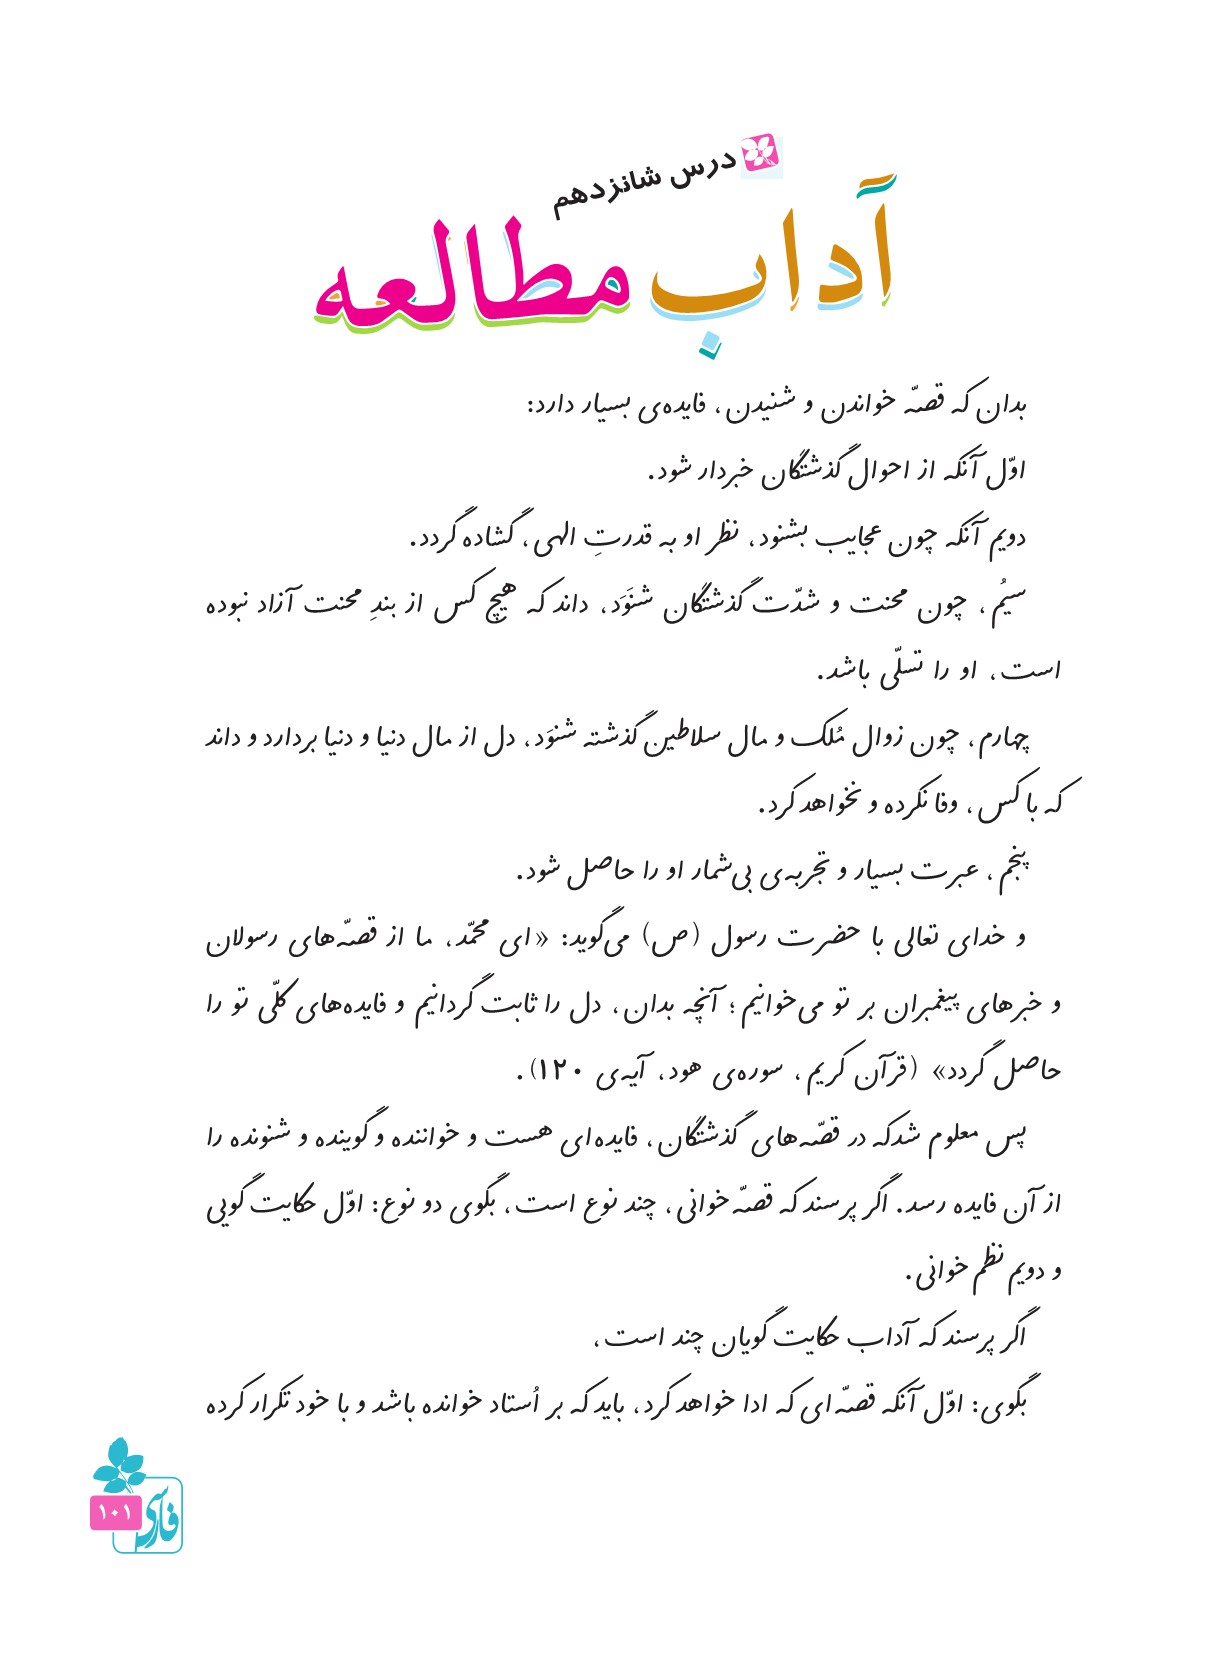 درس شانزدهم
آداب مطالعه
بدان که قصّه خواندن و شنیدن، فایده‌ی بسیار دارد:
اوّل آنکه از احوال گذشتگان خبردار شود.
دویم آنکه چون عجایب بشنود، نظر او به قدرتِ الهی، گشاده گردد.
سیُم، چون محنت و شدّت گذشتگان شنوَد، داند که هیچ کس از بندِ محنت آزاد نبوده
است، او را تسلّی باشد.
چهارم، چون زوال مُلک و مال سلاطین گذشته شنوَد، دل از مال دنیا و دنیا بردارد و داند
که با کس، وفا نکرده و نخواهد کرد.
پنجم، عبرت بسیار و تجربه‌ی بی‌شمار او را حاصل شود.
و خدای تعالی با حضرت رسول (ص) می‌گوید: «ای محمّد، ما از قصّه‌های رسولان
و خبرهای پیغمبران بر تو می‌خوانیم؛ آنچه بدان، دل را ثابت گردانیم و فایده‌های کلّی تو را
حاصل گردد» (قرآن کریم، سوره‌ی هود، آیه‌ی ۱۲۰).
پس معلوم شد که در قصّه‌های گذشتگان، فایده‌ای هست و خواننده و گوینده و شنونده را
از آن فایده رسد. اگر پرسند که قصّه خوانی، چند نوع است، بگوی دو نوع: اوّل حکایت گویی
و دویم نظم خوانی.
اگر پرسند که آداب حکایت گویان چند است،
بگوی: اوّل آنکه قصّه‌ای که ادا خواهد کرد، باید که بر اُستاد خوانده باشد و با خود تکرار کرده
فارسی
۱۰۱